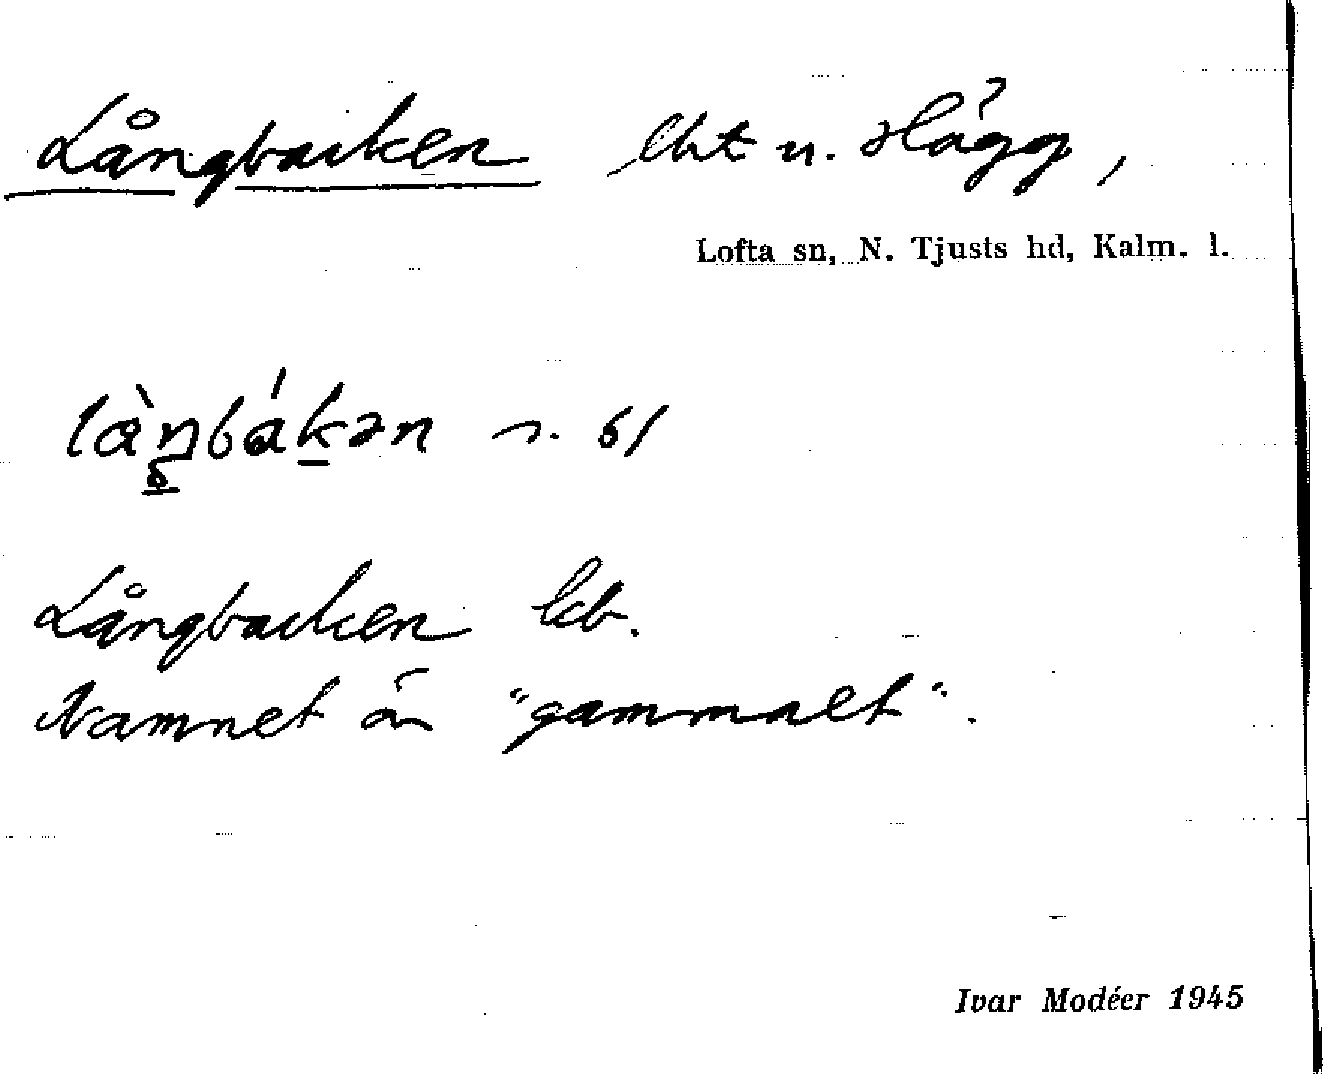 Långbacken lht u. Hägg,
Lofta sn, N. Tjusts hd, Kalm. l.
làŋbákən s. 61
Långbacken kb.
Namnet är "gammalt".
Ivar Modéer 1945